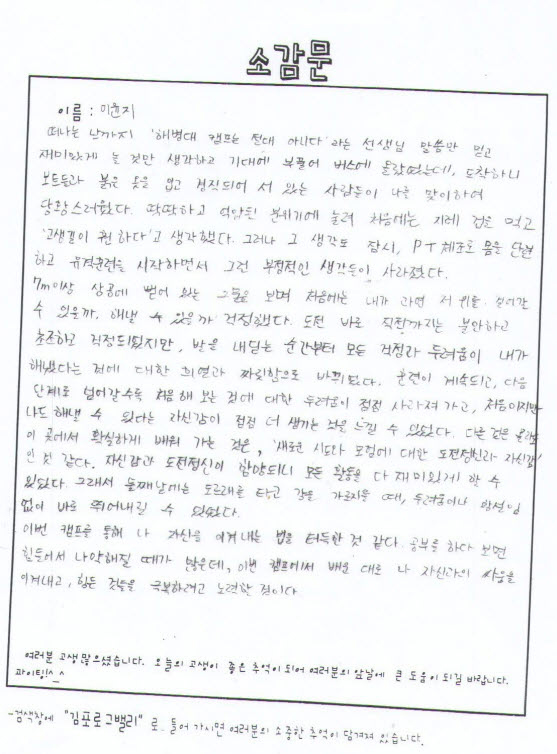 소감문
이름 : 이윤지
떠나는 날까지 '해병대 캠프는 절대 아니다'라는 선생님 말씀만 믿고
재미있게 놀 것만 생각하고 기대에 부풀어 버스에 올랐었는데, 도착하니
보트들과 붉은 옷을 입고 경직되어 서 있는 사람들이 나를 맞이하여
당황스러웠다. 딱딱하고 억압된 분위기에 눌려 처음에는 지레 겁을 먹고
'고생길이 훤하다'고 생각했다. 그러나 그 생각도 잠시, PT체조로 몸을 단련
하고 유격훈련을 시작하면서 그런 부정적인 생각들이 사라졌다.
7m이상 상공에 뻗어 있는 그물을 보며 처음에는 내가 과연 저 위를 걸어갈
수 있을까, 해낼 수 있을까 걱정했다. 도전 바로 직전까지는 불안하고
초조하고 걱정되었지만, 발을 내딛는 순간부터 모든 걱정과 두려움이 내가
해냈다는 것에 대한 희열과 짜릿함으로 바뀌었다. 훈련이 계속되고, 다음
단계로 넘어갈수록 처음 해 보는 것에 대한 두려움이 점점 사라져 가고, 처음이지만
나도 해낼 수 있다는 자신감이 점점 더 생기는 것을 느낄 수 있었다. 다른 것은 몰라도
이 곳에서 확실하게 배워 가는 것은, '새로운 시도와 모험에 대한 도전정신과 자신감'
인 것 같다. 자신감과 도전정신이 함양되니 모든 활동을 다 재미있게 할 수
있었다. 그래서 둘째날에는 도르래를 타고 강을 가로지를 때, 두려움이나 망설임
없이 바로 뛰어내릴 수 있었다.
이번 캠프를 통해 나 자신을 이겨내는 법을 터득한 것 같다. 공부를 하다 보면
힘들어서 나약해질 때가 많은데, 이번 캠프에서 배운 대로 나 자신과의 싸움을
이겨내고, 힘든 것들을 극복하려고 노력할 것이다
여러분 고생 많으셨습니다. 오늘의 고생이 좋은 추억이 되어 여러분의 앞날에 큰 도움이 되길 바랍니다.
파이팅!^_^
-검색창에 "김포로그밸리" 로 들어 가시면 여러분의 소중한 추억이 담겨져 있습니다.